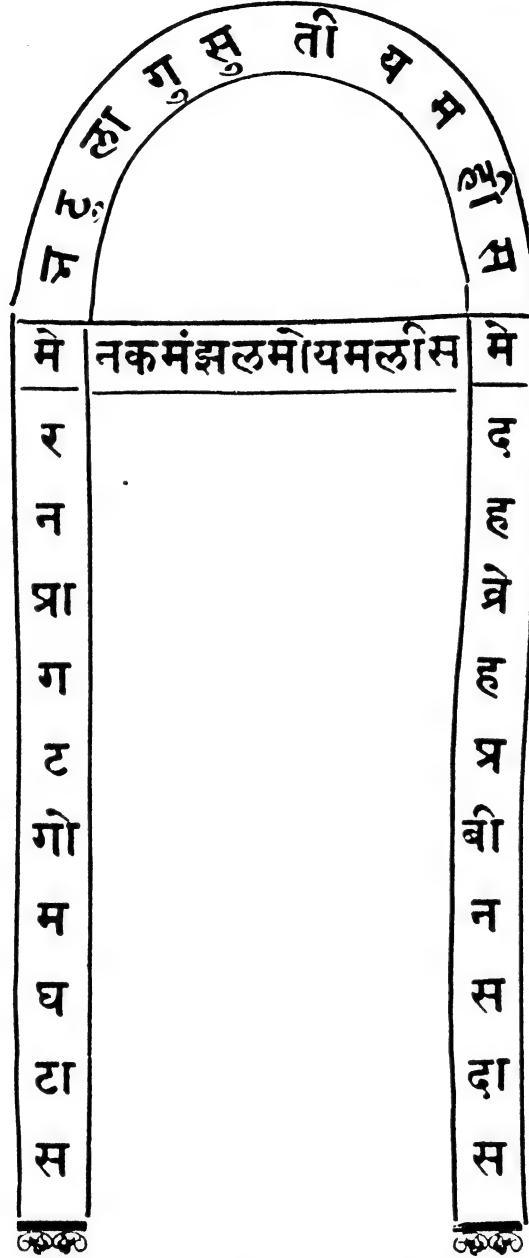 ला गु सु ती य म ही स
मे नकमंझलमोयमलीस मे
र
न
प्रा
ग
ट
गो
म
घ
टा
स
द
ह
व्रे
ह
प्र
बी
न
स
दा
स